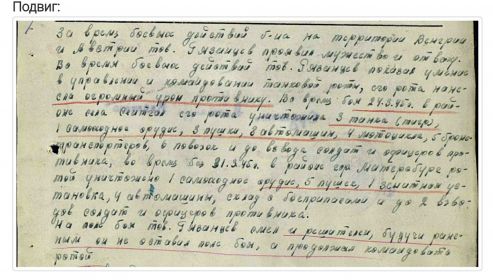 Подвиг:
За время боевых действий б-на на территории Венгрии
и Австрии тов. Рязанцев проявил мужество и отвагу.
Во время боевых действий тов. Рязанцев показал умелым
в управлении и командовании танковой роты, его рота нанес-
ла огромный урон противнику. Во время боя 27.3.45г. в рай-
оне села его рота уничтожила 3 танка (тигр),
1 самоходное орудие, 3 пушки, 2 автомашины, 4 мотоцикла, 5 броне-
транспортеров, 6 повозок и до взвода солдат и офицеров про-
тивника, во время боя 21.3.45г. в районе гор ро-
той уничтожено 1 самоходное орудие, 5 пушек, 1 зенитная ус-
тановка, 4 автомашины, склад с боеприпасами и до 2 взво-
дов солдат и офицеров противника.
На поле боя тов. Рязанцев смел и решителен, будучи ране-
ным он не оставил поле боя, а продолжал командовать
ротой.